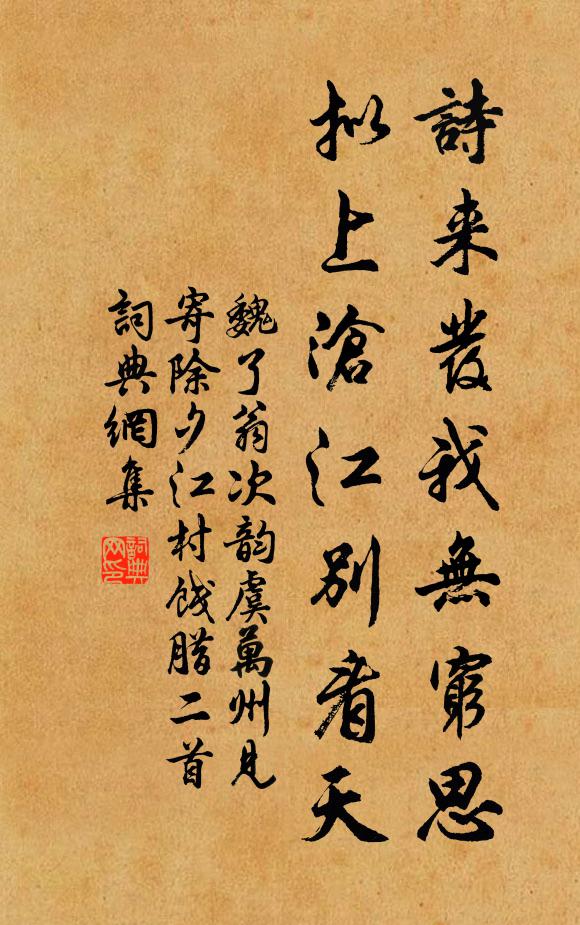 詩来發我無窮思
拟上滄江别看天
魏了翁次韵虞萬州見
寄除夕江村餞腊二首
詞典網集
詞典网印